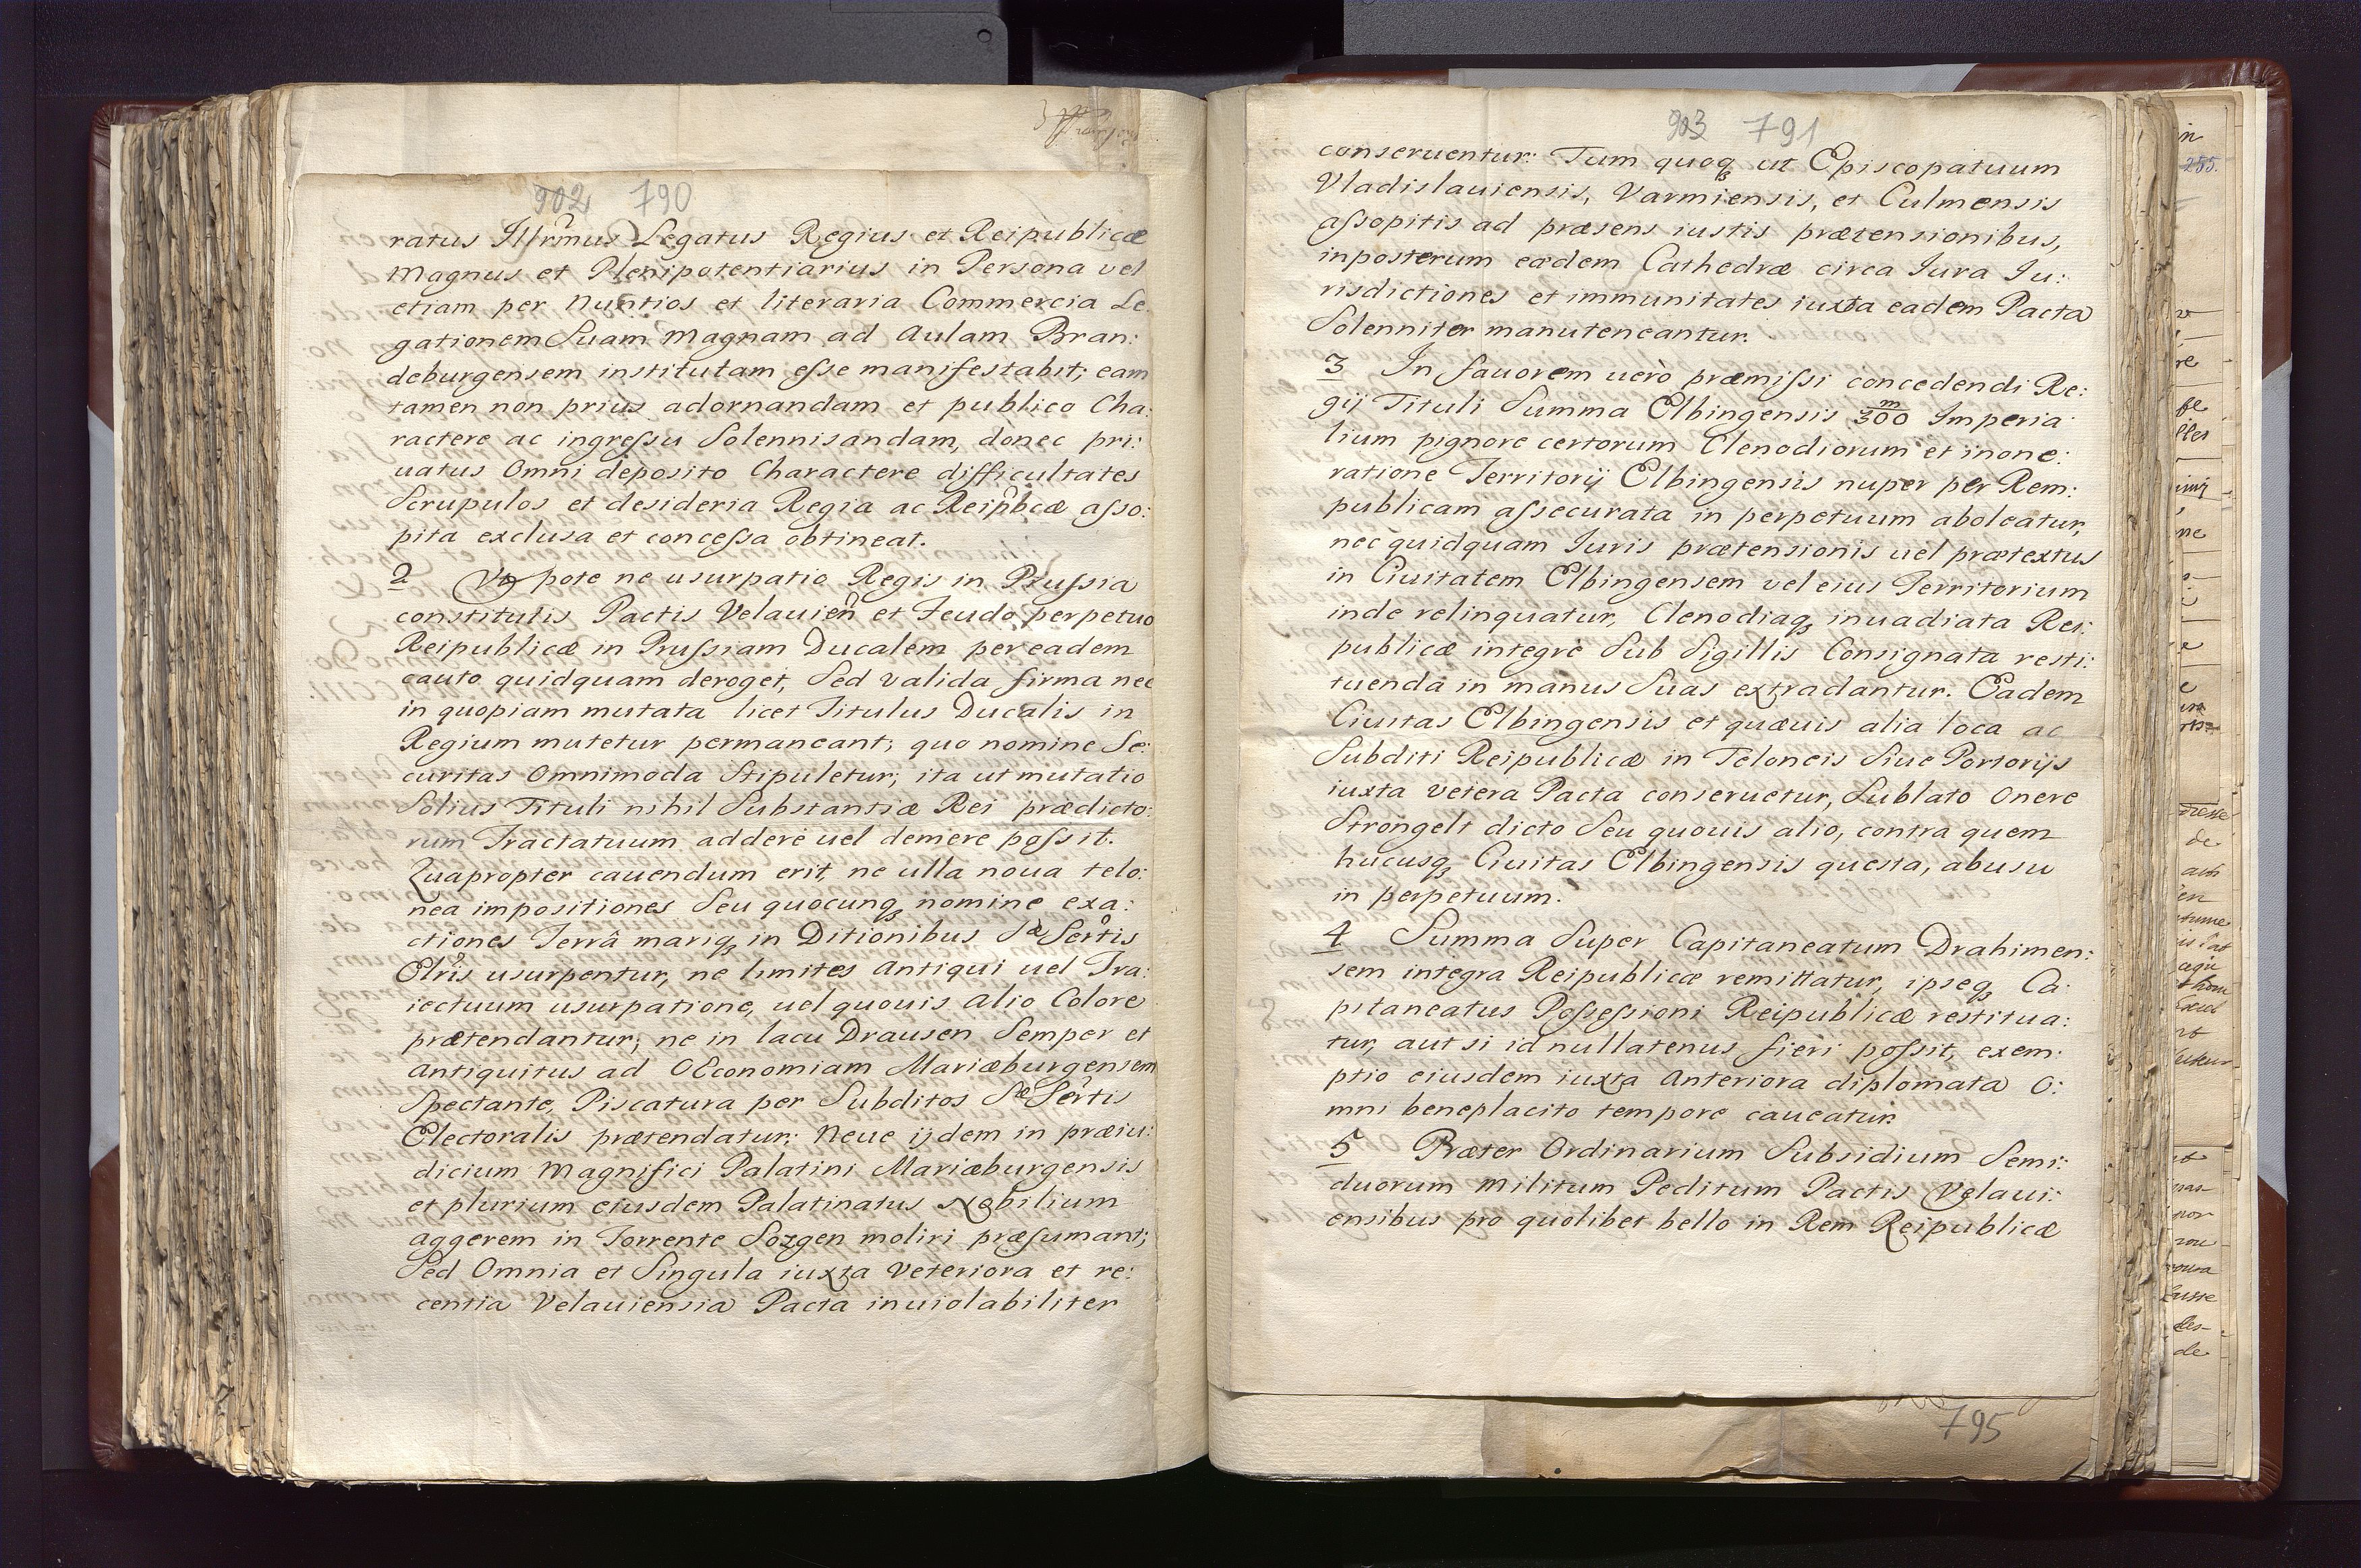 902 790
ratus Illr̃mus Legatus Regius et Reipublicæ
Magnus et Plenipotentiarius in Persona vel
etiam per Nuntios et literaria Commercia Le:
gationem Suam Magnam ad Aulam Bran:
deburgensem institutam esse manifestabit; eam
tamen non prius adornandam et publico Cha:
ractere ac ingressu Solennisandam, donec pri:
uatus Omni deposito Charactere difficultates
Scrupulos et desideria Regia ac Reip̃bcæ asso:
pita exclusa et concessa obtineat.
2 Vt pote ne usurpatio Regis in Prussia
constitutis Pactis Velauien̑ et Feudo perpetuo
Reipublicæ in Prussiam Ducalem per eadem
cauto quidquam deroget, Sed valida firma nec
in quopiam mutata licet Titulus Ducalis in
Regium mutetur permaneant; quo nomine Se:
curitas Omnimoda Stipuletur; ita ut mutatio
Solius Tituli nihil Substantiæ Rei prædicto:
rum Tractatuum addere uel demere possit.
Quapropter cauendum erit, ne ulla noua telo:
nea impositiones Seu quocunq; nomine exa:
ctiones Terrâ mariq; in Ditionibus Sæ Sertis
Olris usurpentur, ne limites Antiqui uel Tra:
iectuum usurpatione, uel quouis alio Colore
prætendantur; ne in lacu Drausen Semper et
antiquitus ad OEconomiam Mariæburgensem
Spectante, Piscatura per Subditos Sæ Sertis
Electoralis prætendatur: Neue ijdem in præiu:
dicium Magnifici Palatini Mariæburgensis
et plurium eiusdem Palatinatus Nobilium
aggerem in Torrente Sorgen moliri præsumant;
Sed Omnia et Singula iuxta Veteriora et re:
centia Velauiensia Pacta inuiolabiliter
903 791
conseruentur: Tum quoq; ut Episcopatuum
Vladislauiensis, Varmiensis, et Culmensis
assopitis ad præsens iustis prætensionibus,
inposterum eædem Cathedræ circa Iura Iu:
risdictiones et immunitates iuxta eadem Pacta
Solenniter manuteneantur.
3 In fauorem uerò præmissi concedendi Re:
gij Tituli Summa Elbingensis m/300 Imperia
lium pignore certorum Clenodiorum et inone:
ratione Territorij Elbingensis nuper per Rem:
publicam assecurata in perpetuum aboleatur,
nec quidquam Iuris prætensionis uel prætextus
in Ciuitatem Elbingensem vel eius Territorium
inde relinquatur, Clenodiaq; inuadiata Rei:
publicæ integrè Sub Sigillis Consignata resti:
tuenda in manus Suas extradantur. Eadem
Ciuitas Elbingensis et quæuis alia loca ac
Subditi Reipublicæ in Teloneis Siue Portorijs
iuxta vetera Pacta conseruetur, Sublato Onere
Strongelt dicto Seu quouis alio, contra quem
hucusq; Ciuitas Elbingensis questa, abusu
in perpetuum.
4 Summa Super Capitaneatum Drahimen:
sem integra Reipublicæ remittatur, ipseq; Ca:
pitaneatus Possessioni Reipublicæ restitua:
tur, aut si id nullatenus fieri possit, exem:
ptio eiusdem iuxta Anteriora diplomata O:
mni beneplacito tempore caueatur.
5 Præter Ordinarium Subsidium Semi:
duorum Militum Peditum Pactis Velaui:
ensibus pro quolibet bello in Rem Reipublicæ
795
285.